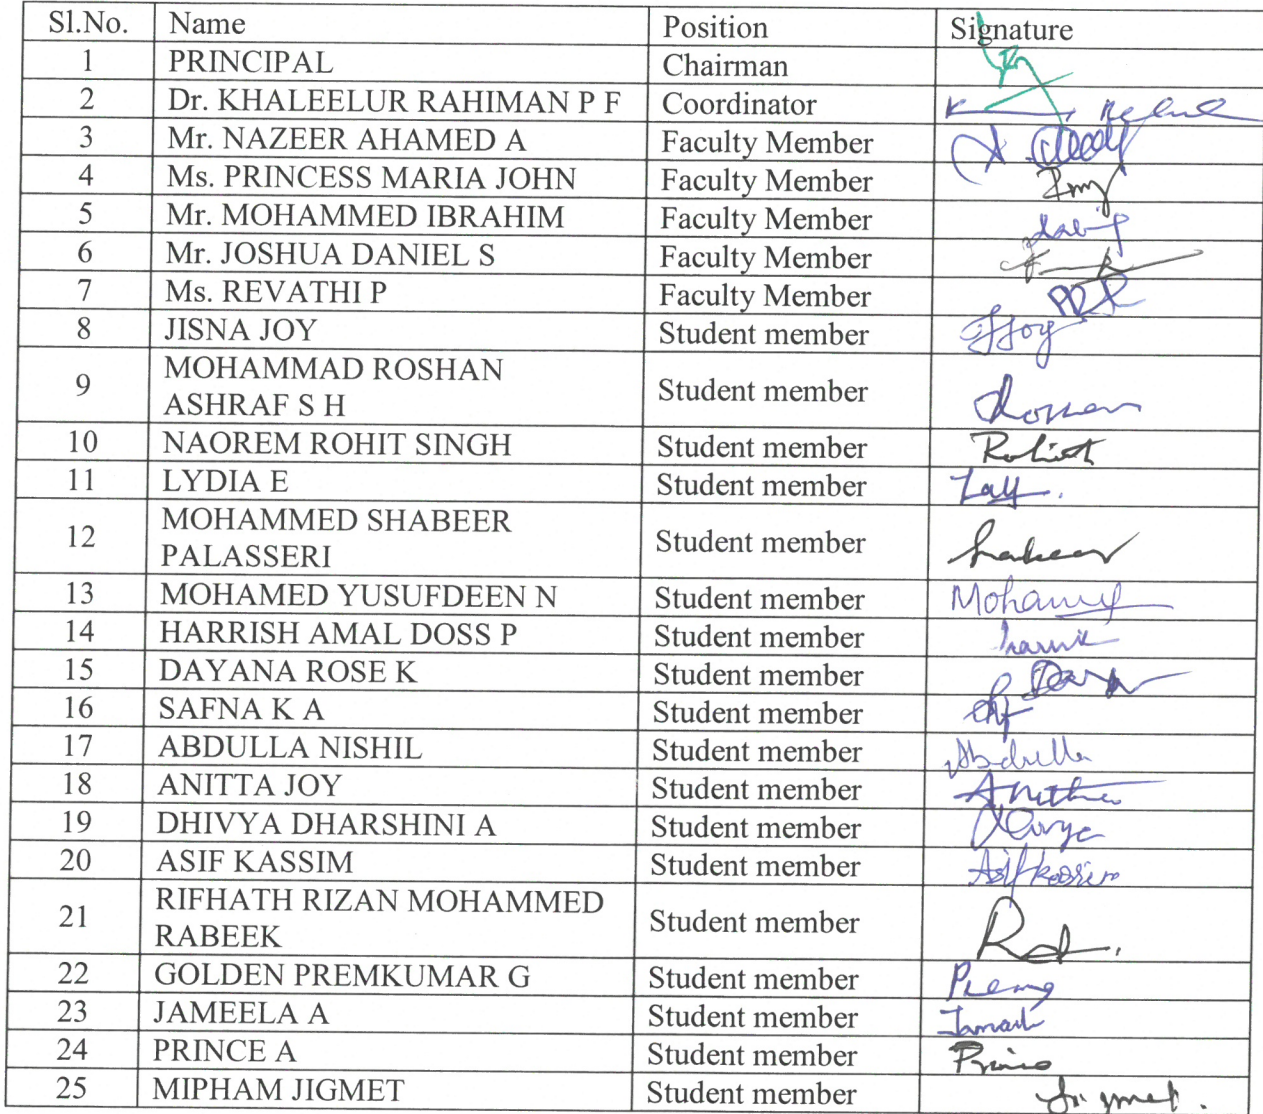 Sl.No. Name Position Signature
1 PRINCIPAL Chairman
2 Dr. KHALEELUR RAHIMAN P F Coordinator
3 Mr. NAZEER AHAMED A Faculty Member
4 Ms. PRINCESS MARIA JOHN Faculty Member
5 Mr. MOHAMMED IBRAHIM Faculty Member
6 Mr. JOSHUA DANIEL S Faculty Member
7 Ms. REVATHI P Faculty Member
8 JISNA JOY Student member
MOHAMMAD ROSHAN
9 ASHRAF S H Student member
10 NAOREM ROHIT SINGH Student member
11 LYDIA E Student member
MOHAMMED SHABEER
12 PALASSERI Student member
13 MOHAMED YUSUFDEEN N Student member
14 HARRISH AMAL DOSS P Student member
15 DAYANA ROSE K Student member
16 SAFNA K A Student member
17 ABDULLA NISHIL Student member Abdulla
18 ANITTA JOY Student member
19 DHIVYA DHARSHINI A Student member
20 ASIF KASSIM Student member
RIFHATH RIZAN MOHAMMED
21 RABEEK Student member
22 GOLDEN PREMKUMAR G Student member
23 JAMEELA A Student member
24 PRINCE A Student member
25 MIPHAM JIGMET Student member